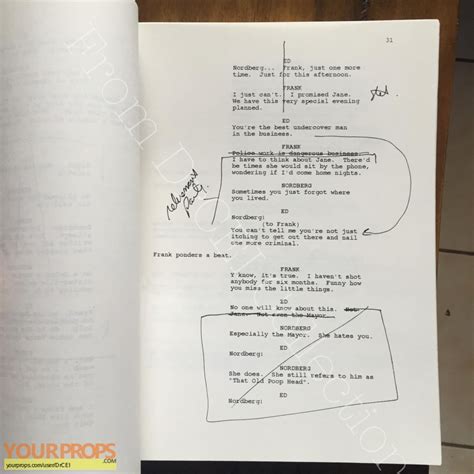 31
ED
Nordberg... Frank, just one more
time. Just for this afternoon.
FRANK
I just can't. I promised Jane.
We have this very special evening
planned.
ED
You're the best undercover man
in the business.
FRANK
Police work is dangerous business.
I have to think about Jane. There'd
be times she would sit by the phone,
wondering if I'd come home nights.
NORDBERG
Sometimes you just forgot where
you lived.
ED
Nordberg!
(to Frank)
You can't tell me you're not just
itching to get out there and nail
one more criminal.
Frank ponders a beat.
FRANK
Y'know, it's true. I haven't shot
anybody for six months. Funny how
you miss the little things.
ED
No one will know about this. Not
Jane. Not even the Mayor.
NORDBERG
Especially the Mayor. She hates you.
ED
Nordberg!
NORDBERG
She does. She still refers to him as
"That Old Poop Head".
ED
Nordberg!
retirement
party
From
YOURPROPS
.COM
yourprops.com/user/DrCEI